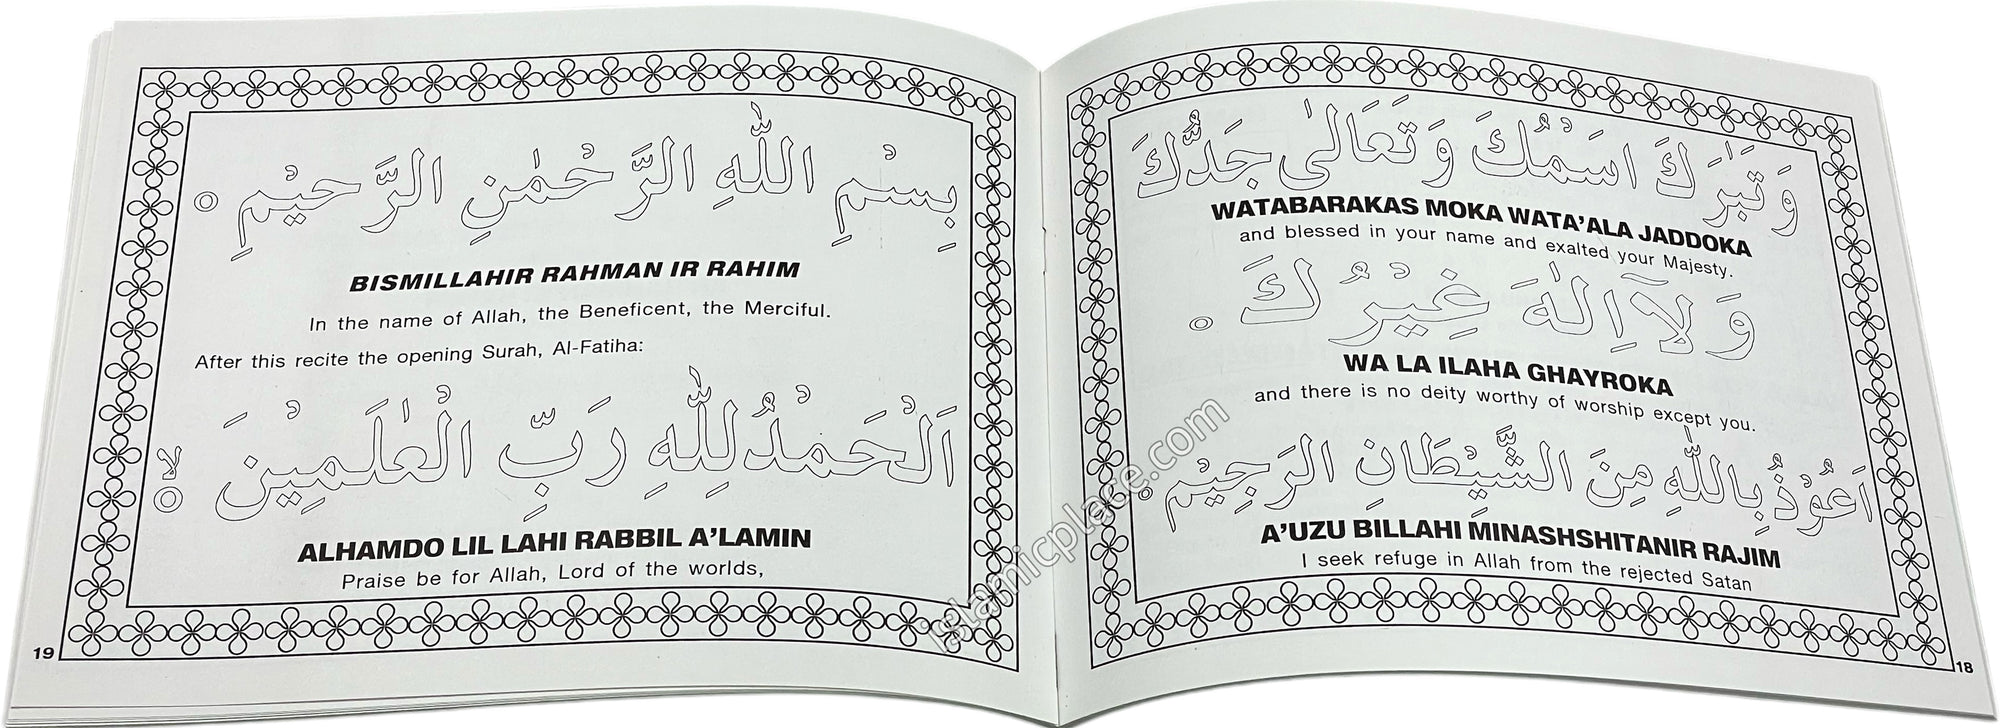 وَتَبٰرَكَ اسْمُكَ وَتَعَالٰى جَدُّكَ
WATABARAKAS MOKA WATA’ALA JADDOKA
and blessed in your name and exalted your Majesty.
وَلَآ اِلٰهَ غَيْرُكَ
WA LA ILAHA GHAYROKA
and there is no deity worthy of worship except you.
اَعُوْذُ بِاللّٰهِ مِنَ الشَّيْطَانِ الرَجِيْمِ
A’UZU BILLAHI MINASHSHITANIR RAJIM
I seek refuge in Allah from the rejected Satan
18
بِسْمِ اللّٰهِ الرَّحْمٰنِ الرَّحِيْمِ
BISMILLAHIR RAHMAN IR RAHIM
In the name of Allah, the Beneficent, the Merciful.
After this recite the opening Surah, Al-Fatiha:
اَلْحَمْدُ لِلّٰهِ رَبِّ الْعٰلَمِيْنَ لا
ALHAMDO LIL LAHI RABBIL A’LAMIN
Praise be for Allah, Lord of the worlds,
19
islamicplace.com